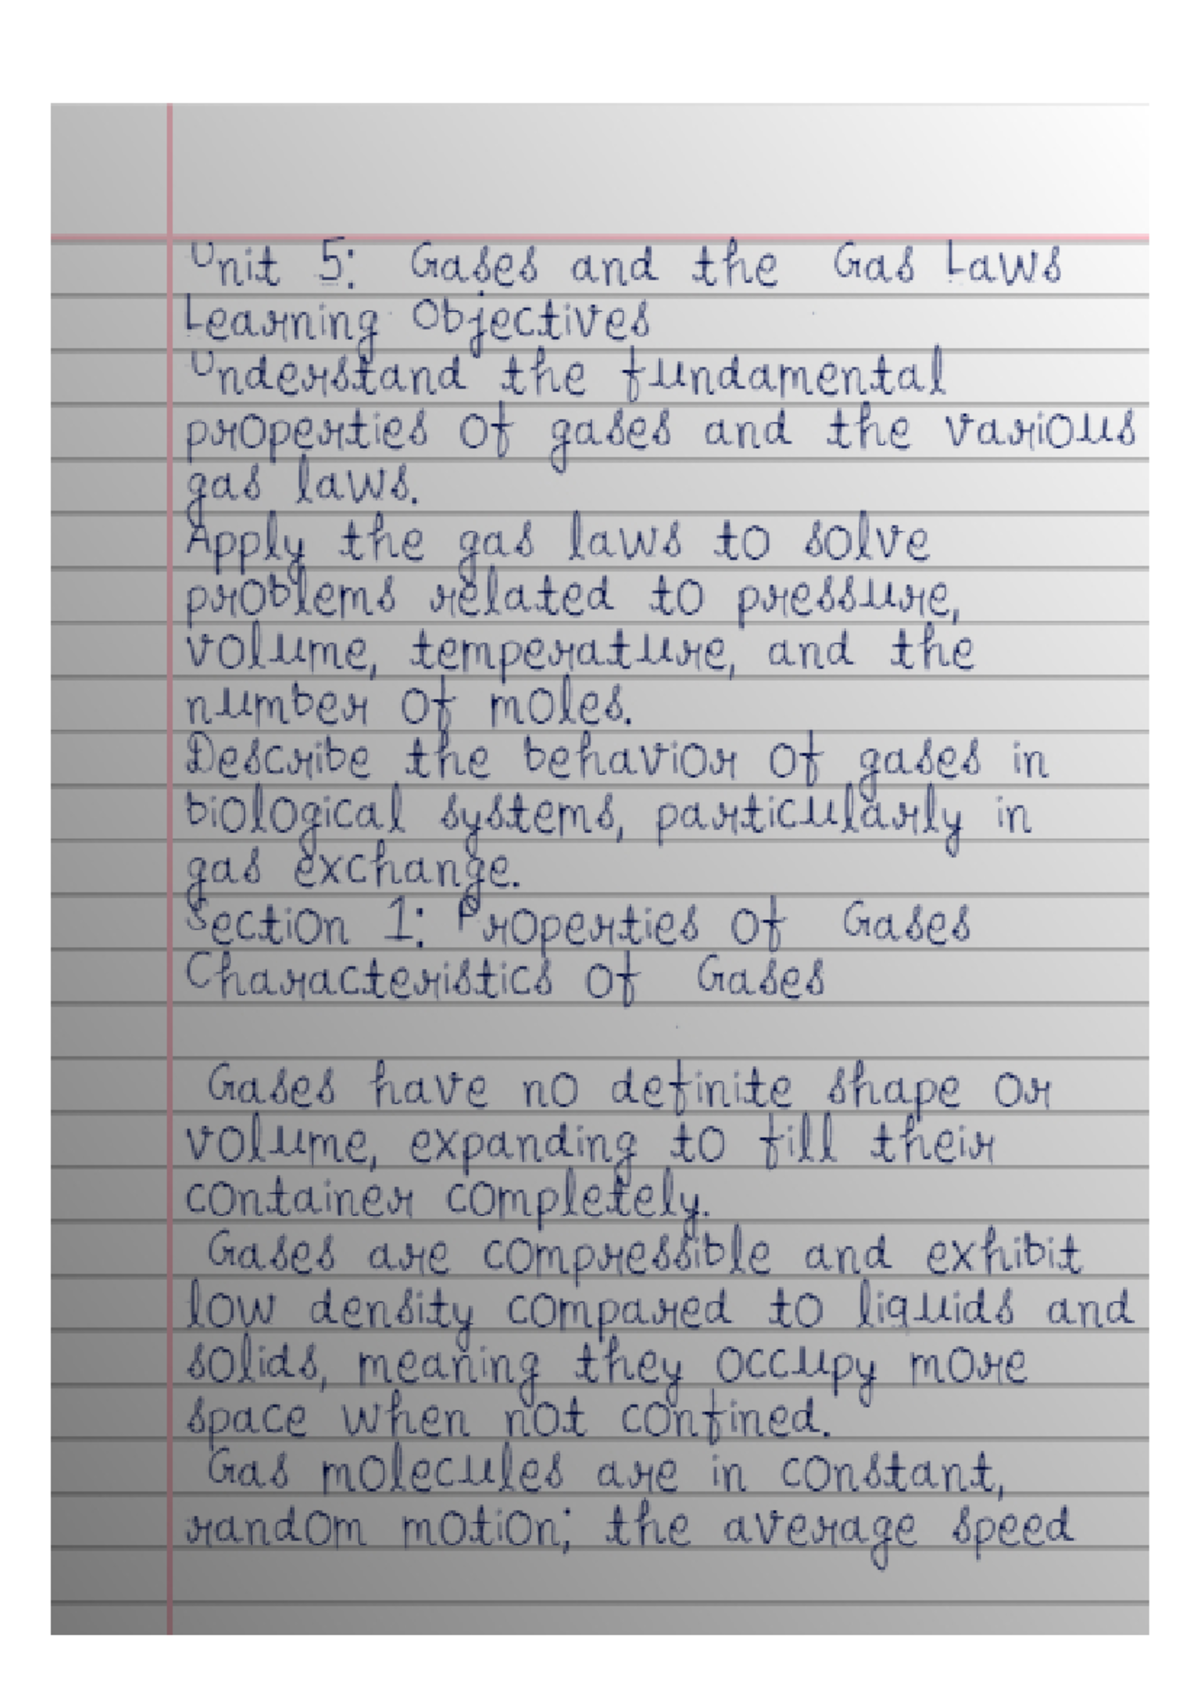 Unit 5: Gases and the Gas Laws
Learning Objectives
Understand the fundamental
properties of gases and the various
gas laws.
Apply the gas laws to solve
problems related to pressure,
volume, temperature, and the
number of moles.
Describe the behavior of gases in
biological systems, particularly in
gas exchange.
Section 1: Properties of Gases
Characteristics of Gases
Gases have no definite shape or
volume, expanding to fill their
container completely.
Gases are compressible and exhibit
low density compared to liquids and
solids, meaning they occupy more
space when not confined.
Gas molecules are in constant,
random motion; the average speed